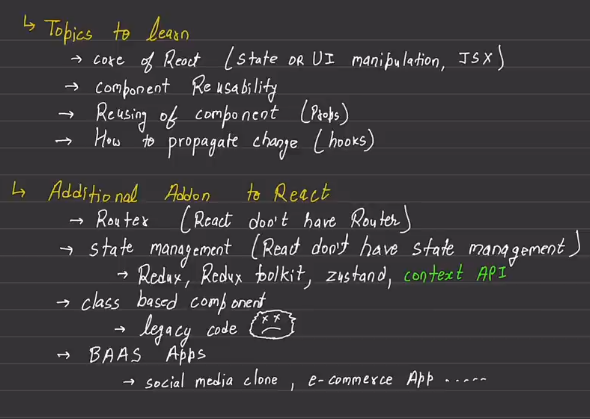 ↳ Topics to learn
→ core of React (state or UI manipulation, JSX)
→ component Reusability
→ Reusing of component (Props)
→ How to propagate change (hooks)
↳ Additional Addon to React
→ Router (React don't have Router)
→ state management (React don't have state management)
→ Redux, Redux toolkit, zustand, context API
→ class based component
→ legacy code
→ BAAS Apps
→ social media clone, e-commerce App ......